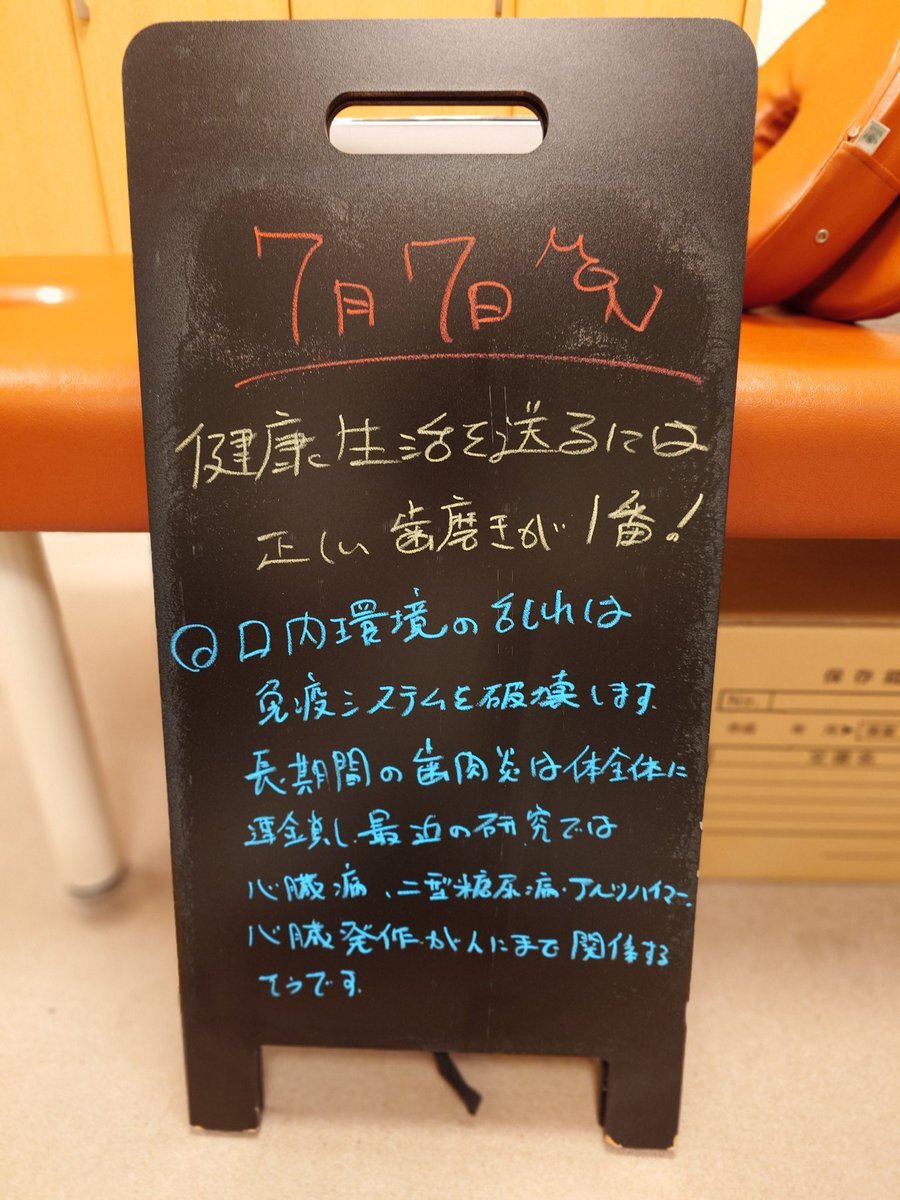 7月7日 Mon
健康生活を送るには
正しい歯磨きが1番!
口内環境の乱れは
免疫システムを破壊します.
長期間の歯肉炎は体全体に
連鎖し最近の研究では
心臓病、二型糖尿病・アルツハイマー.
心臓発作がんにまで関係する
そうです.
No.